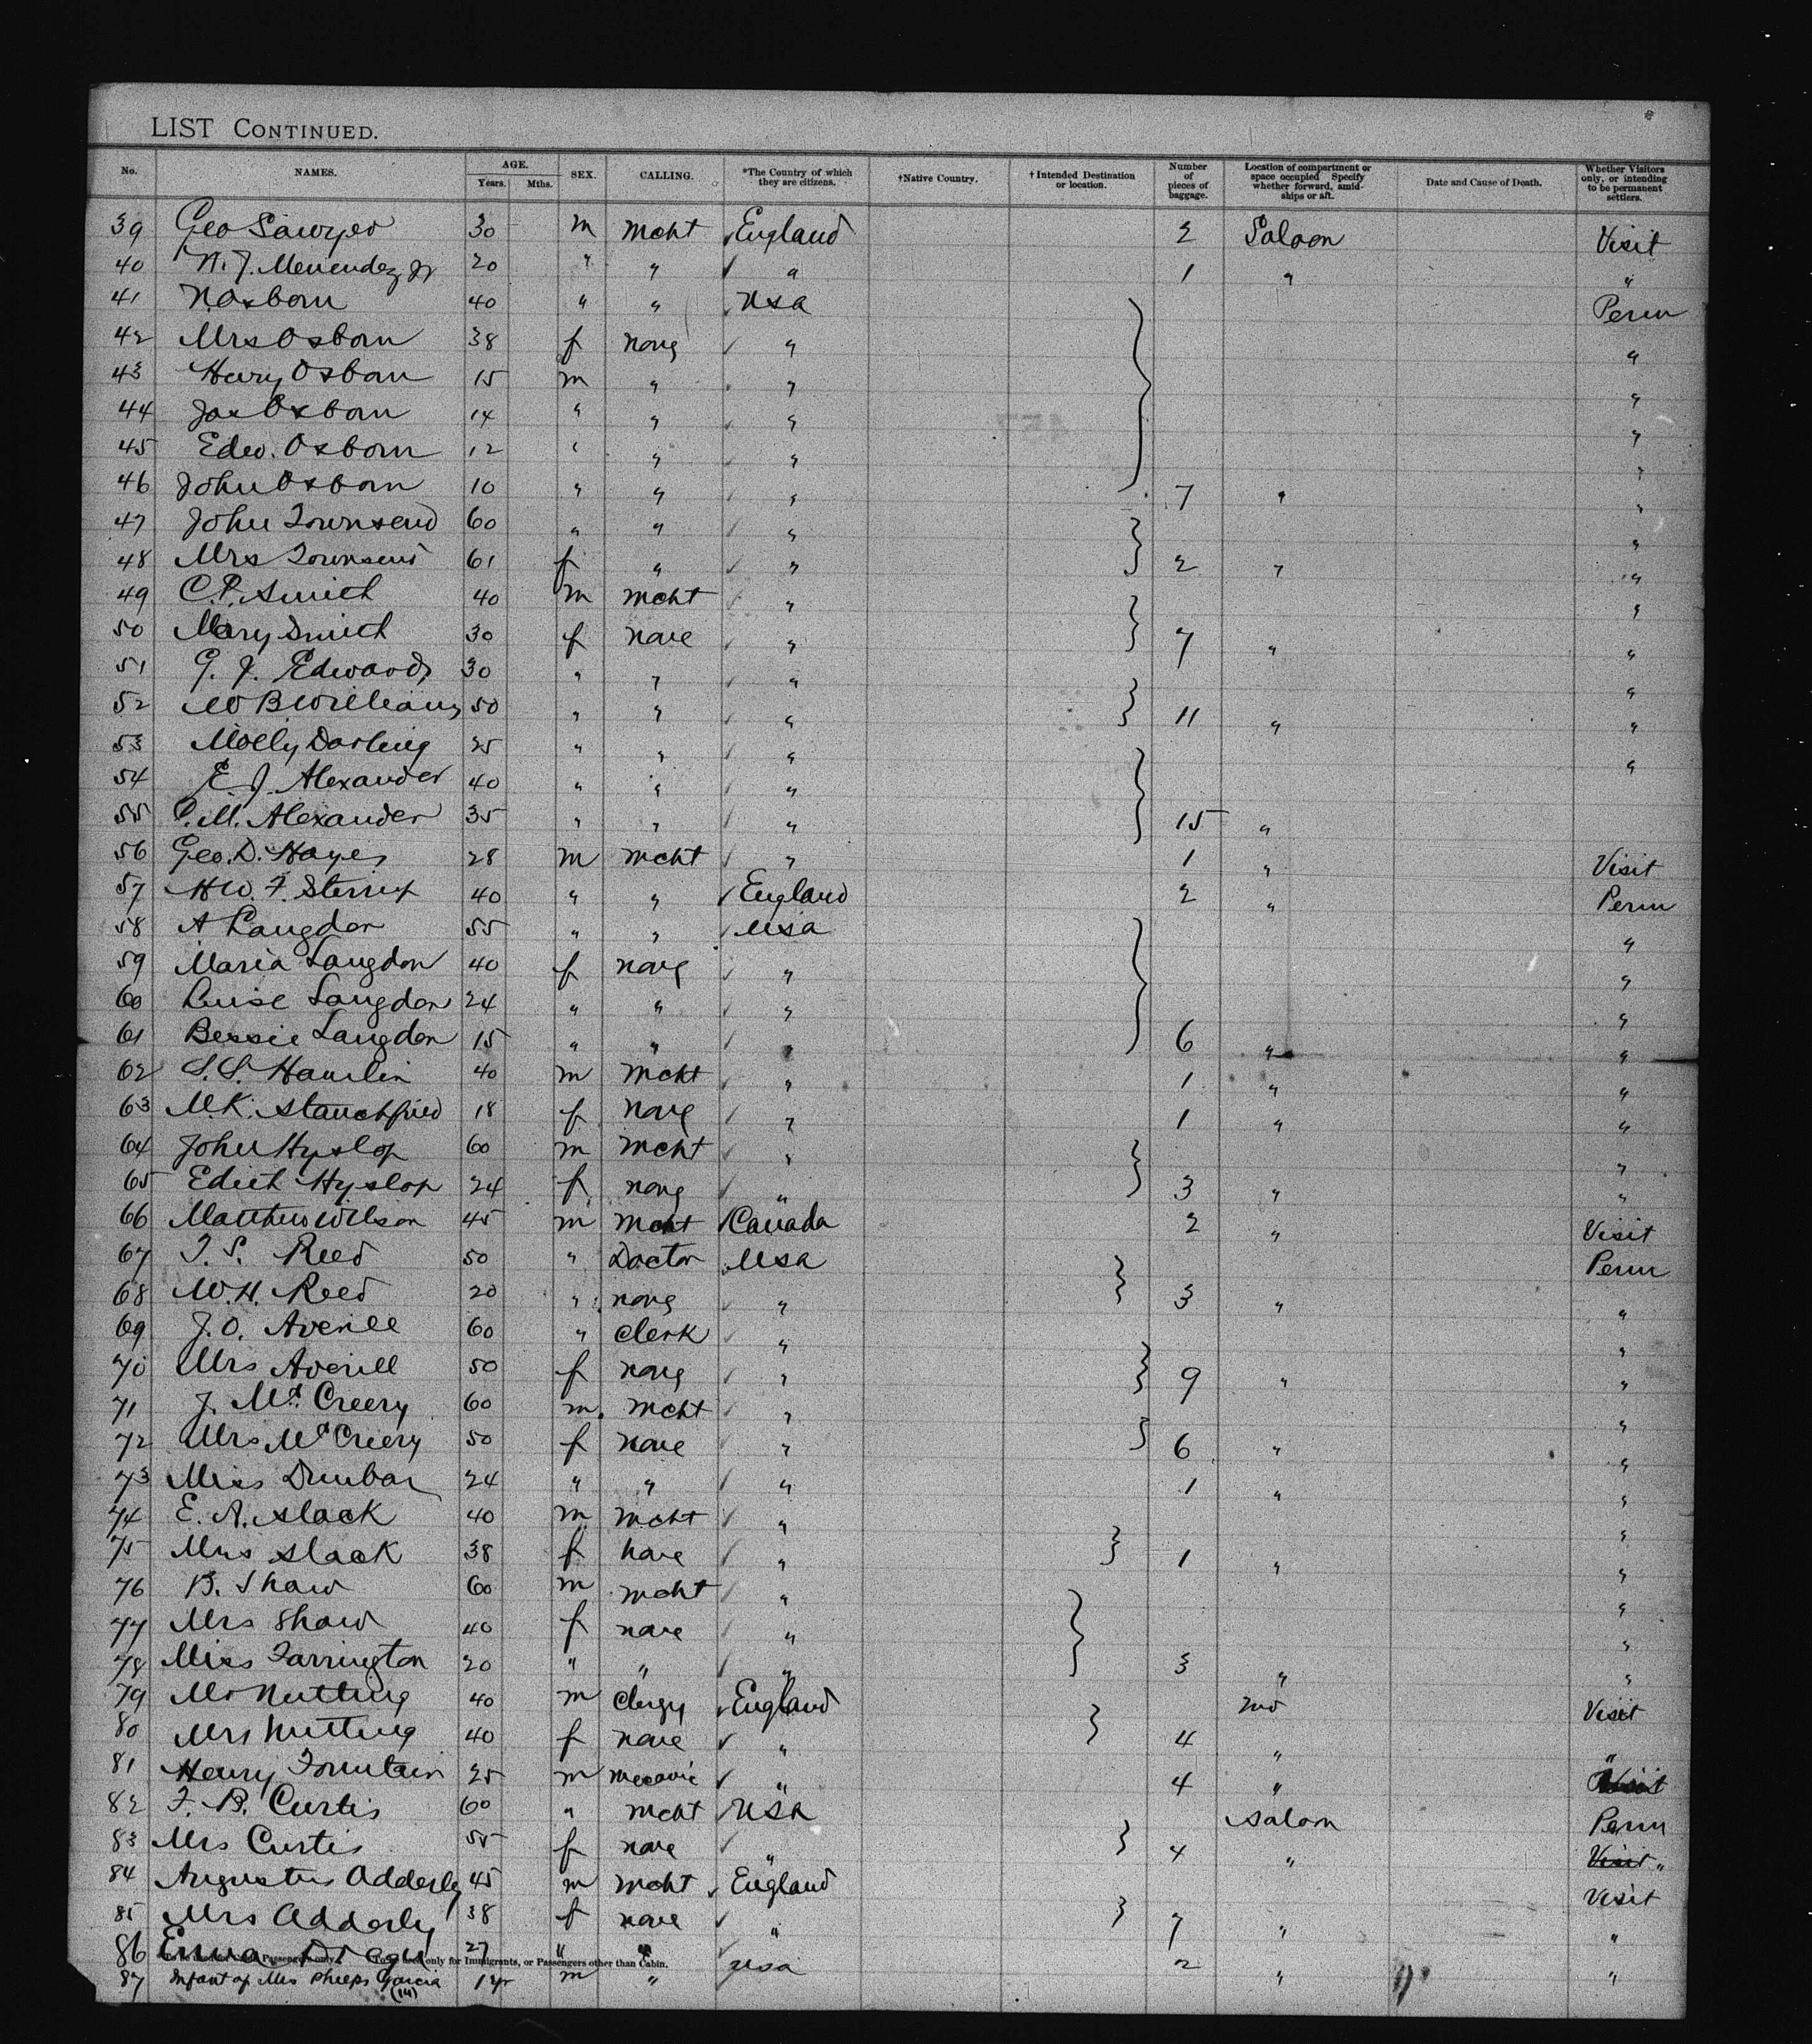 LIST CONTINUED.
No. NAMES. AGE. Years. Mths. SEX. CALLING. *The Country of which they are citizens. †Native Country. †Intended Destination or location. Number of pieces of baggage. Location of compartment or space occupied Specify whether forward, amidships or aft. Date and Cause of Death. Whether Visitors only, or intending to be permanent settlers.
39 Geo Sawyer 30 m mcht England 2 Saloon Visit
40 N. J. Menendez Jr 20 " " " 1 " "
41 N Osborn 40 " " USA Perm
42 Mrs Osborn 38 f none " "
43 Harry Osborn 15 m " " "
44 Jas Osborn 14 " " " "
45 Edw. Osborn 12 " " " "
46 John Osborn 10 " " " 7 " "
47 John Townsend 60 " " " "
48 Mrs Townsend 61 f " " 2 " "
49 C. P. Smith 40 m mcht " "
50 Mary Smith 30 f none " 7 " "
51 G. J. Edwards 30 " " " "
52 W B Williams 50 " " " 11 " "
53 Molly Darling 25 " " " "
54 E. J. Alexander 40 " " "
55 P. M. Alexander 35 " " " 15 "
56 Geo. D. Hayes 28 m mcht " 1 " Visit
57 H W. F. Sterrup 40 " " England 2 " Perm
58 A Langdon 55 " " USA "
59 Maria Langdon 40 f none " "
60 Luise Langdon 24 " " " "
61 Bessie Langdon 15 " " " 6 " "
62 S. S. Hamlin 40 m mcht " 1 " "
63 M. K. Stanchfield 18 f none " 1 " "
64 John Hyslop 60 m mcht " "
65 Edith Hyslop 24 f none " 3 " "
66 Matthew Wilson 45 m mcht Canada 2 " Visit
67 T. S. Reed 50 " Doctor USA Perm
68 W. H. Reed 20 " none " 3 " "
69 J. O. Averill 60 " Clerk " "
70 Mrs Averill 50 f none " 9 " "
71 J. Mc Creery 60 m mcht " "
72 Mrs McCreery 50 f none " 6 " "
73 Miss Dunbar 24 " " " 1 " "
74 E. A. Slack 40 m mcht " "
75 Mrs Slack 38 f none " 1 " "
76 B. Shaw 60 m mcht " "
77 Mrs Shaw 40 f none " "
78 Miss Farrington 20 " " " 3 " "
79 Mr Nutting 40 m Clergy England 2nd Visit
80 Mrs Nutting 40 f none " 4 " "
81 Henry Fountain 25 m mecanic " 4 " Visit
82 F. B. Curtis 60 " mcht USA Saloon Perm
83 Mrs Curtis 55 f none " 4 " Visit "
84 Augustus Adderly 45 m mcht England Visit
85 Mrs Adderly 38 f none " 7 " "
86 27 " " USA 2 " "
Passengers only. only for Immigrants, or Passengers other than Cabin.
87 Infant of Mrs Phelps Garcia 1 yr m " " "
(14)